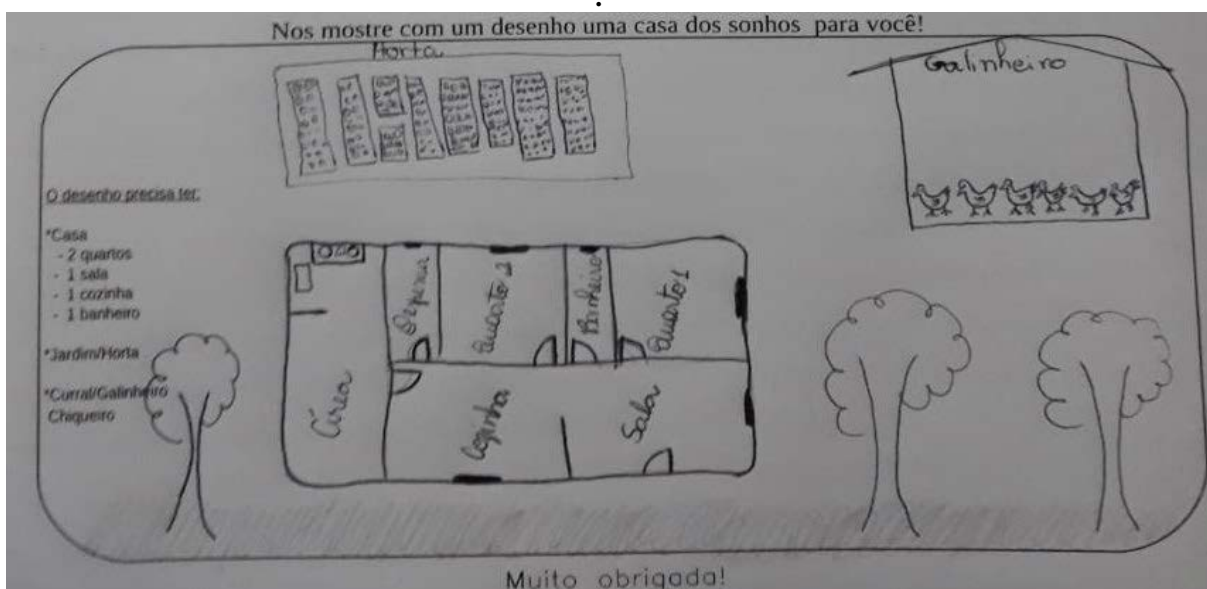 Nos mostre com um desenho uma casa dos sonhos para você!
Horta
Galinheiro
O desenho precisa ter:
*Casa
- 2 quartos
- 1 sala
- 1 cozinha
- 1 banheiro
*Jardim/Horta
*Curral/Galinheiro
Chiqueiro
Quarto 2
Banheiro
Quarto 1
Área
Cozinha
Sala
Muito obrigada!